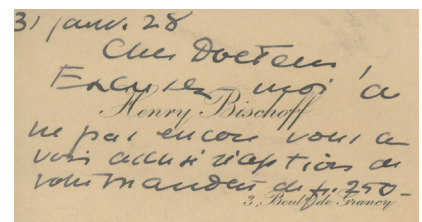 31 janv. 28
Cher Docteur,
Excusez moi de
Henry Bischoff
ne pas encore vous a
voir accusé réception de
votre mandat de fr. 250-
3, Boul.d de Grancy